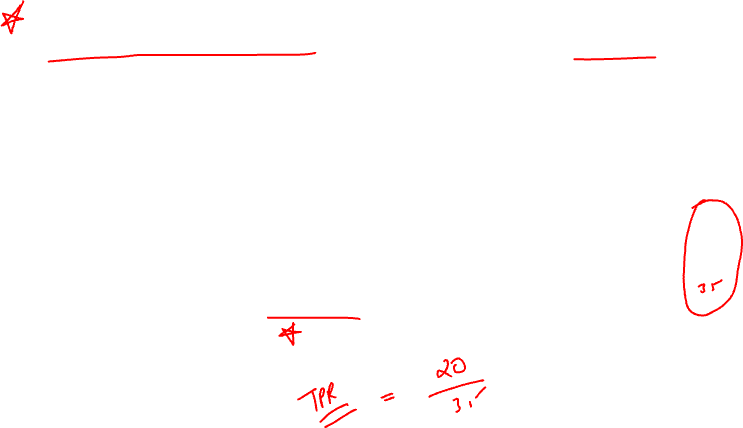 35
TPR = 20/35